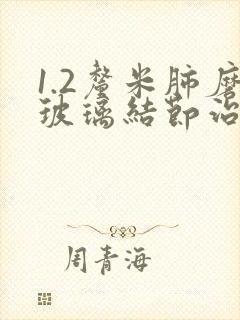 1.2釐米肺磨
玻璃結節治
周青海